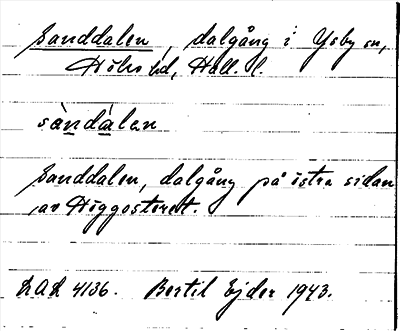 Sanddalen, dalgång i Ysby sn,
Höks hd, Hall. l.
sàndàlen
Sanddalen, dalgång på östra sidan
av Höggosteret.
LAL 4136. Bertil Ejder 1943.